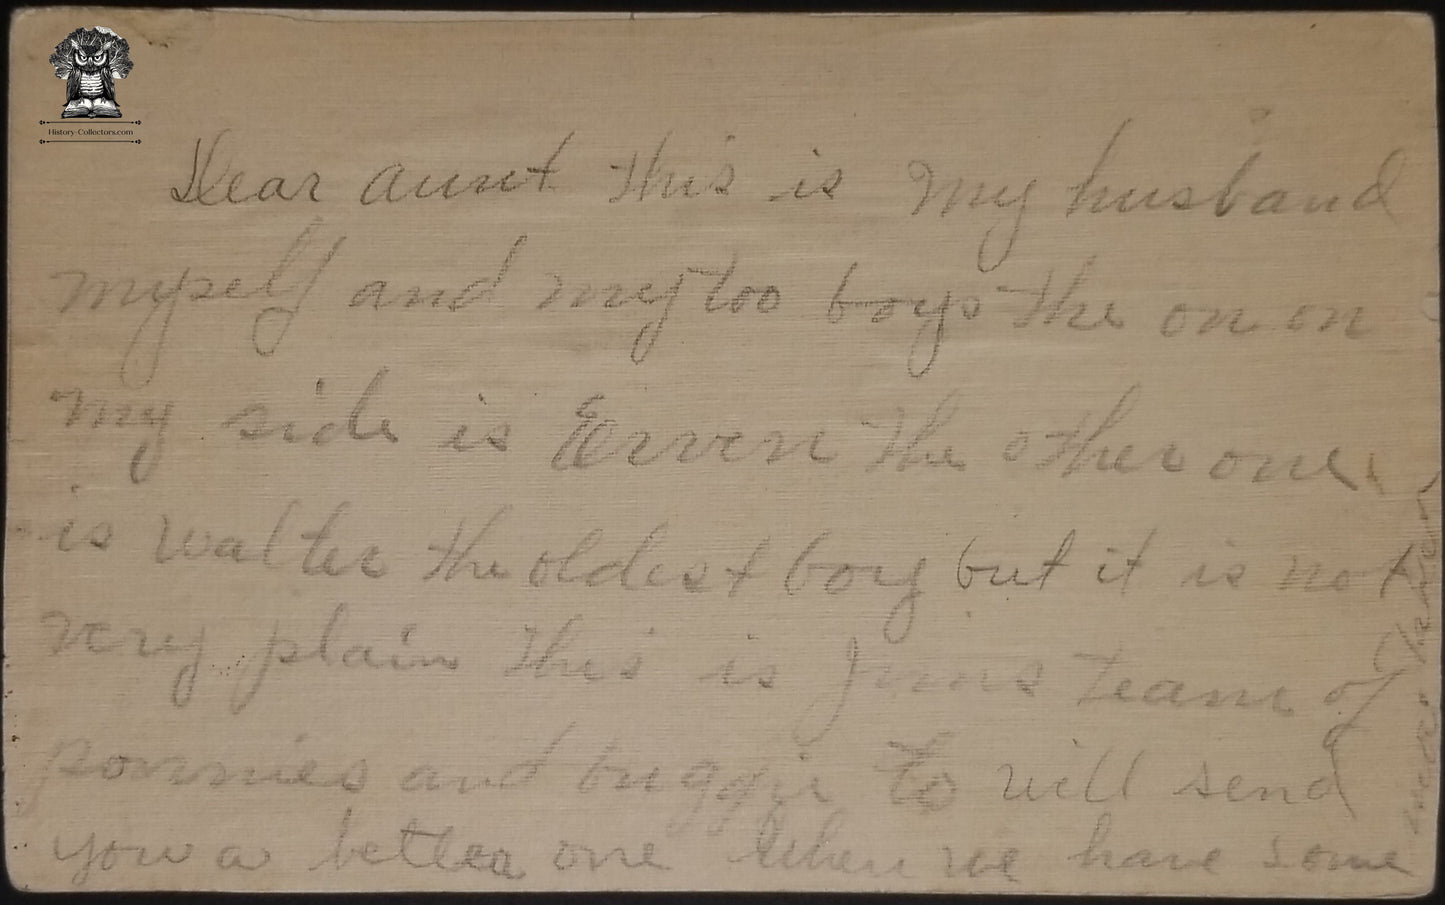 History-Collectors.com
Dear aunt this is my husband
myself and my too boys the on on
my side is Erven the other one
is walter the oldest boy but it is not
very plain this is Jims team of
ponnies and buggie to will send
you a better one when we have some